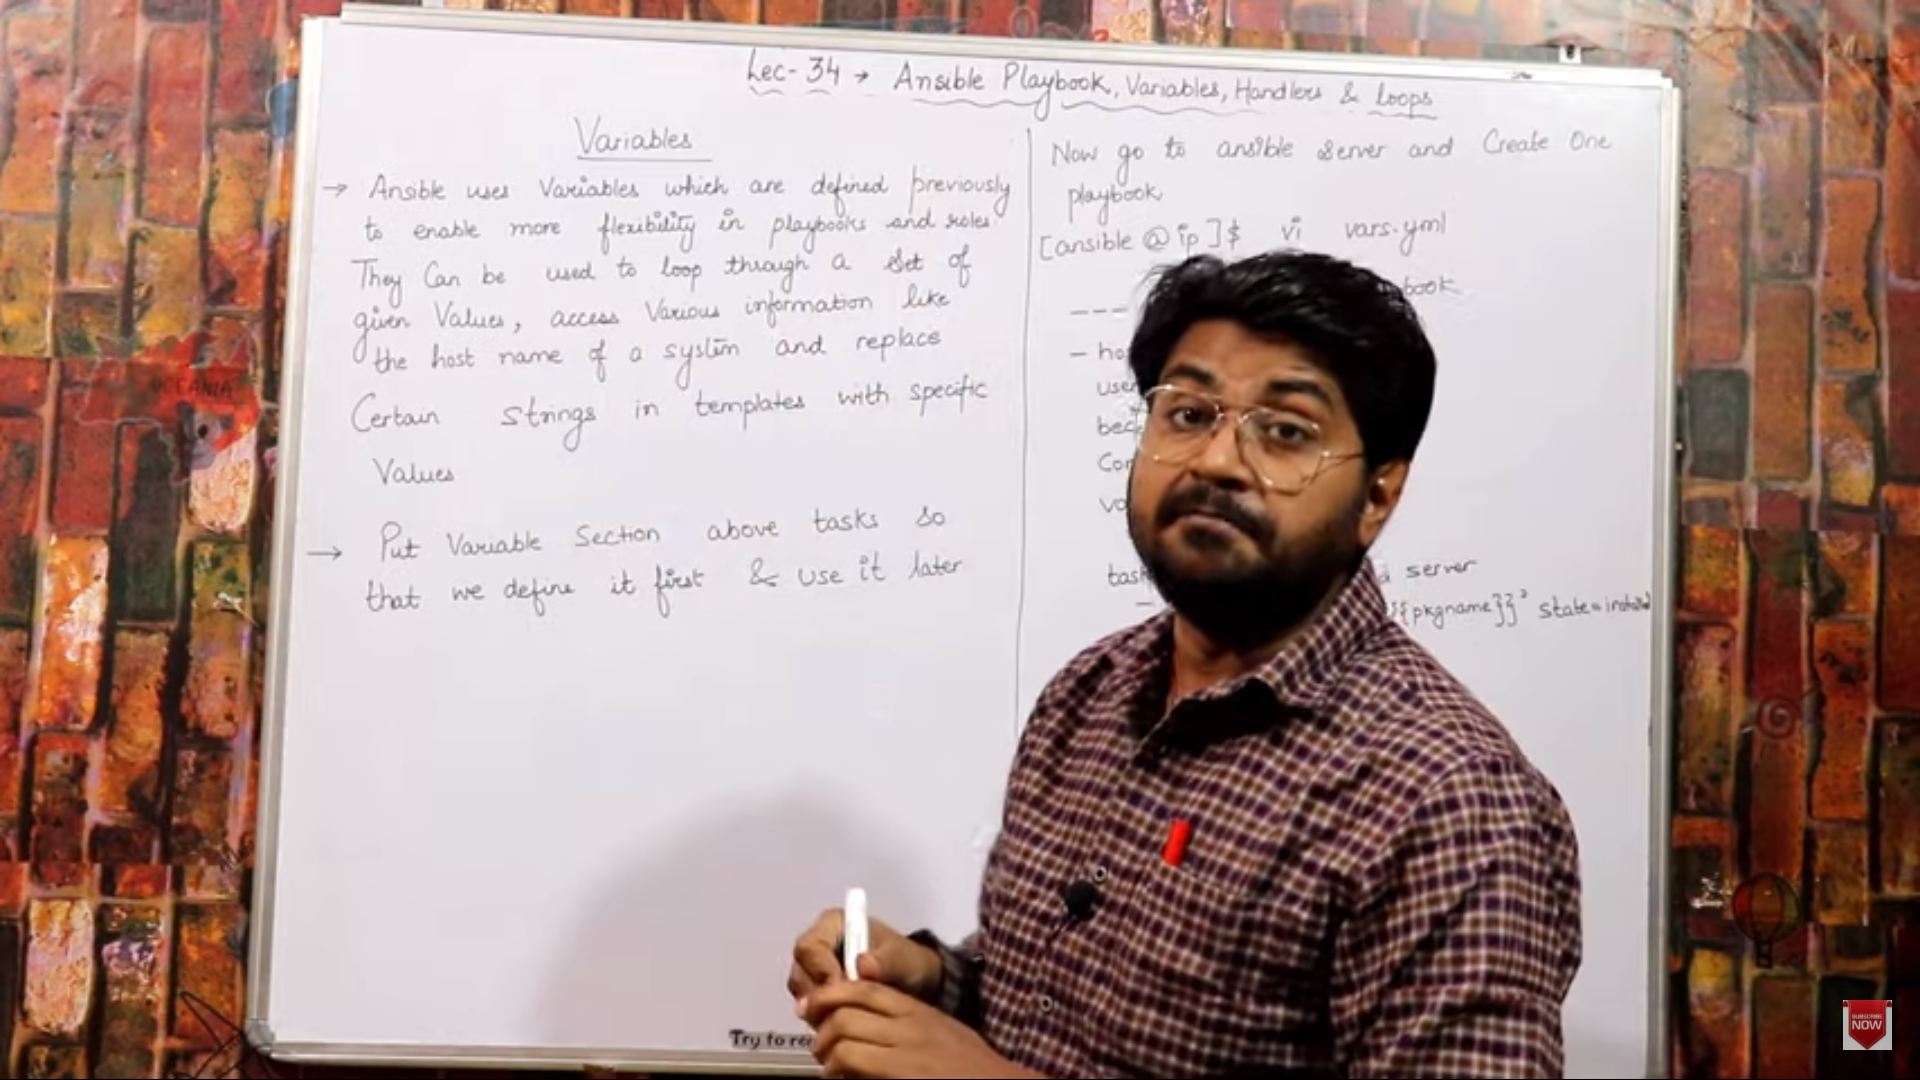 Lec-34 → Ansible Playbook, Variables, Handlers & Loops
Variables
→ Ansible uses Variables which are defined previously
to enable more flexibility in playbooks and roles
They Can be used to loop through a set of
given Values, access Various information like
the host name of a system and replace
Certain strings in templates with specific
Values
→ Put Variable Section above tasks so
that we define it first & use it later
Now go to ansible server and Create One
playbook
[ansible @ ip ]$ vi vars.yml
---
-
server
{{pkgname}}' state=installed
Try to
SUBSCRIBE
NOW
OCEANIA